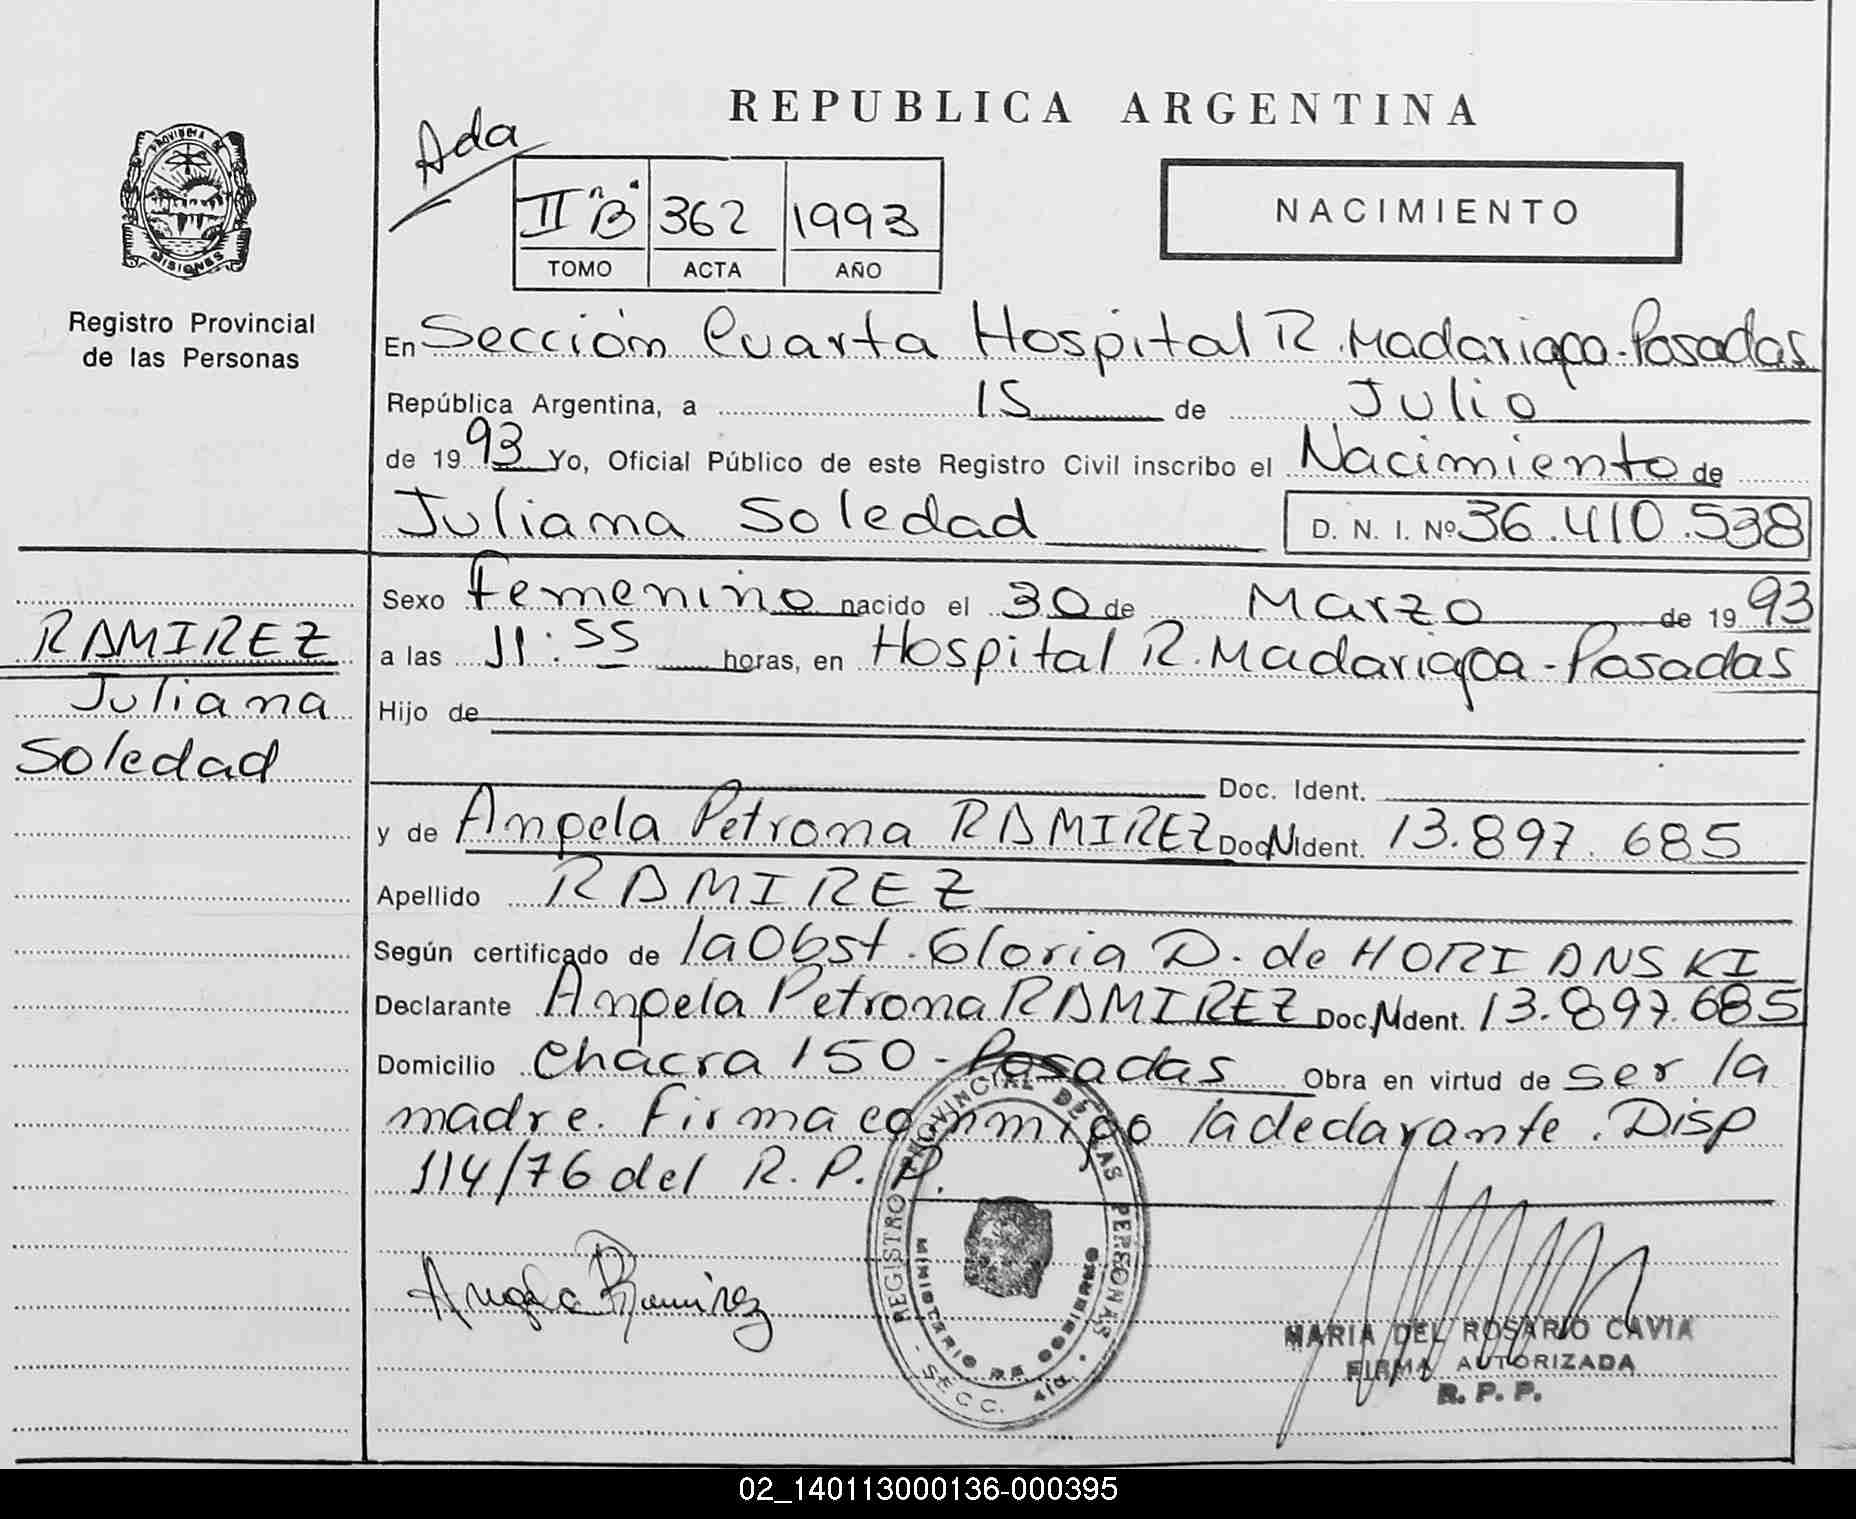 REPUBLICA ARGENTINA
Ada
II "B" 362 1993
TOMO ACTA AÑO
NACIMIENTO
PROVINCIA DE
MISIONES
Registro Provincial
de las Personas
En Sección Cuarta Hospital R. Madariaga-Posadas
República Argentina, a 15 de Julio
de 1993 Yo, Oficial Público de este Registro Civil inscribo el Nacimiento de
Juliana Soledad D. N. I. Nº 36.410.538
Sexo femenino nacido el 30 de Marzo de 1993
RAMIREZ
a las 11:55 horas, en Hospital R. Madariaga-Posadas
Juliana
Hijo de
Soledad
Doc. Ident.
y de Angela Petrona RAMIREZ Doc. NIdent. 13.897.685
Apellido RAMIREZ
Según certificado de la Obst. Gloria D. de HORIANSKI
Declarante Angela Petrona RAMIREZ Doc. NIdent. 13.897.685
Domicilio Chacra 150-Posadas Obra en virtud de ser la
madre. Firma conmigo la declarante. Disp
114/76 del R. P. P.
REGISTRO PROVINCIAL DE LAS PERSONAS
MINISTERIO DE GOBIERNO
SECC. 4ta.
Angela Ramirez
MARIA DEL ROSARIO CAVIA
FIRMA AUTORIZADA
R. P. P.
02_140113000136-000395